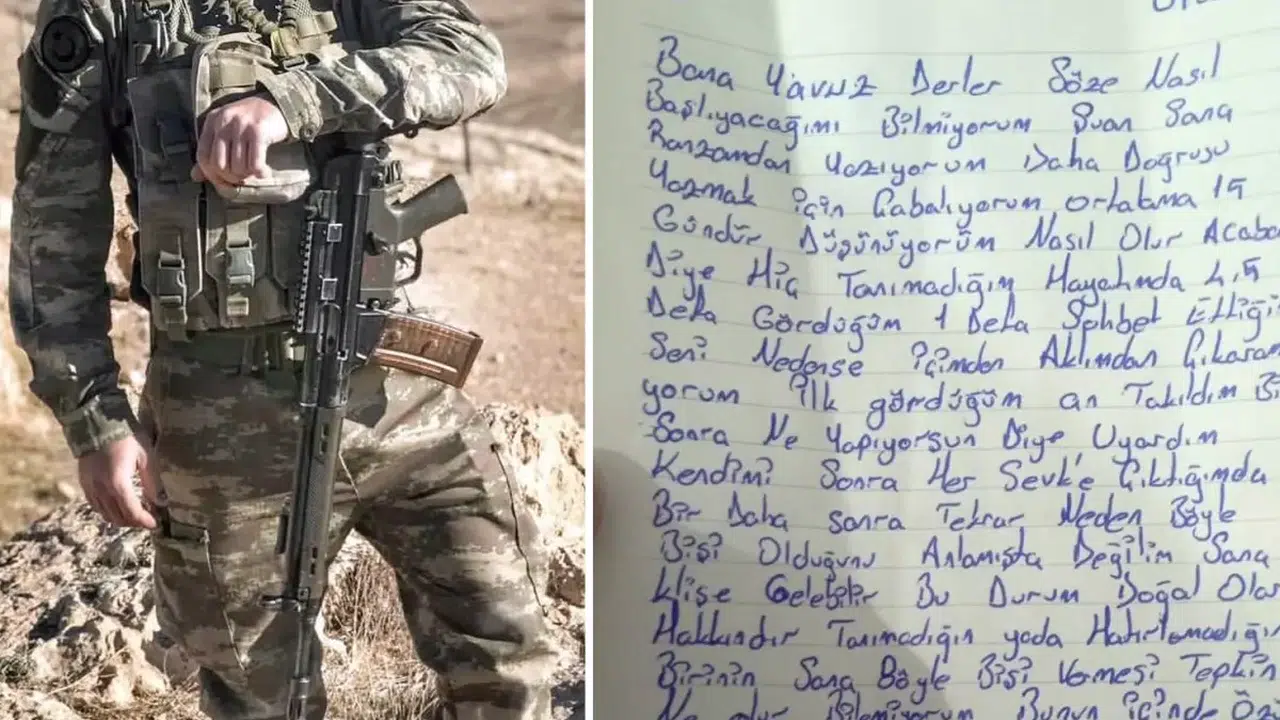 Bana Yavuz Derler Söze Nasıl
Başlıyacağımı Bilmiyorum Şuan Sana
Ranzamdan Yazıyorum Daha Doğrusu
Yazmak için Çabalıyorum ortalama 15
Gündür Düşünüyorum Nasıl Olur Acaba
Diye Hiç Tanımadığım Hayatımda 4,5
Defa Gördüğüm 1 Defa Sohbet Ettiği
Seni Nedense içimden Aklımdan Çıkaram
yorum ilk gördüğüm an Takıldım Bi
Sonra Ne Yapıyorsun Diye Uyardım
Kendimi Sonra Her Sevk'e Çıktığımda
Bir Daha sonra Tekrar Neden Böyle
Bişi Olduğunu Anlamışta Değilim Sana
klişe Gelebilir Bu Durum Doğal Olar
Hakkındır Tanımadığın yada Hatırlamadığın
Birinin Sana Böyle Bişi Vermesi Tepkin
Ne olur Bilemiyorum Bunun içinde Öz